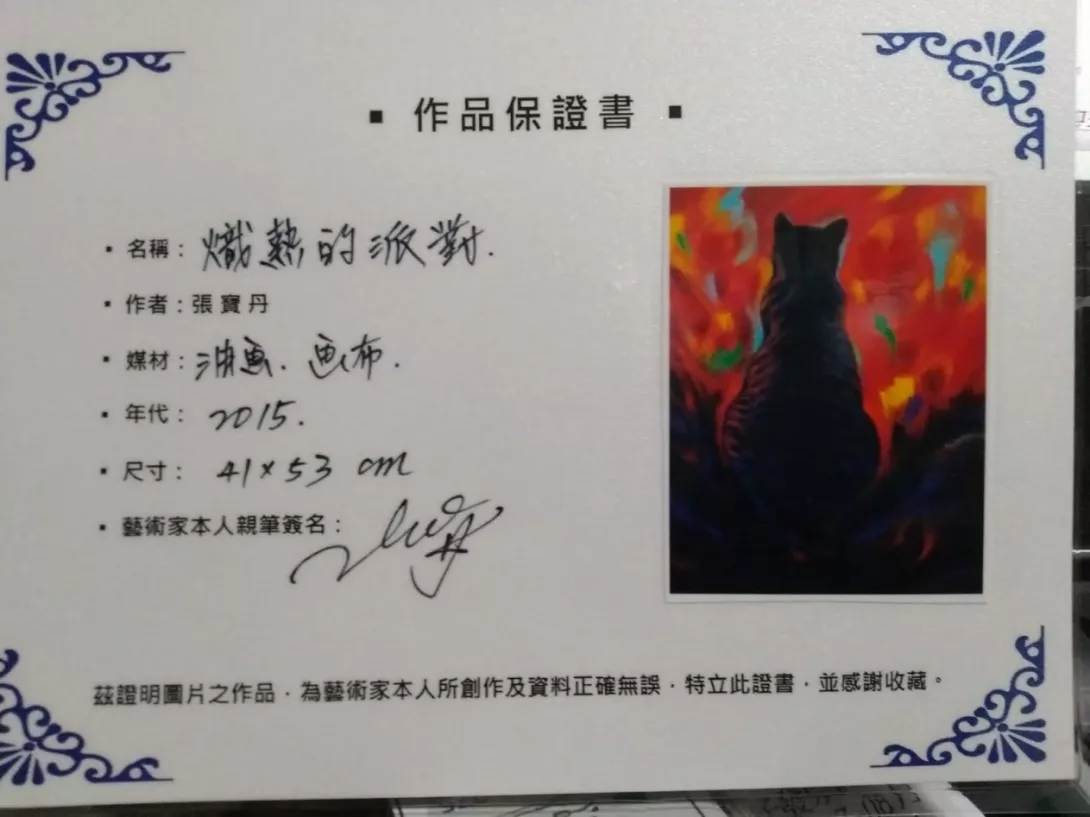 ▪ 作品保證書 ▪
▪ 名稱：熾熱的派對.
▪ 作者：張寶丹
▪ 媒材：油画. 画布.
▪ 年代：2015.
▪ 尺寸：41×53 cm
▪ 藝術家本人親筆簽名：
茲證明圖片之作品．為藝術家本人所創作及資料正確無誤．特立此證書．並感謝收藏。